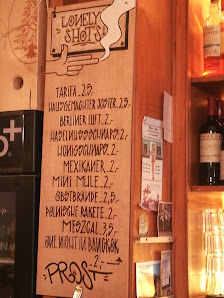 LONELY
SHOTS
TARIFA 2,5.
HAUSGEMACHTER JÖSTER 2,5
BERLINER LUFT 2,-
HASELNUSSSCHNAPS 2,-
HONIGSCHNAPS 2,-
MEXIKANER 2,-
MINI MULE 2,-
OBSTBRÄNDE 2,5
POLNISCHE RAKETE 2,-
MEZCAL 3,5
ONE NIGHT IN BANGKOK
2,-
PROST